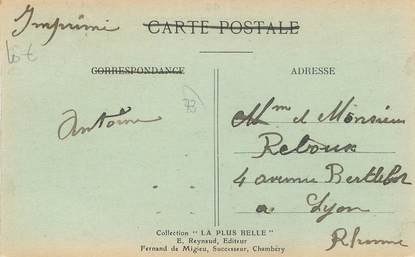 Imprimé
CARTE POSTALE
lot
CORRESPONDANCE
ADRESSE
73
Mme et Monsieur
Antoine
Reboux
4 avenue Berthelot
a Lyon
Rhonne
Collection " LA PLUS BELLE "
E. Reynaud, Editeur
Fernand de Migieu, Successeur, Chambéry